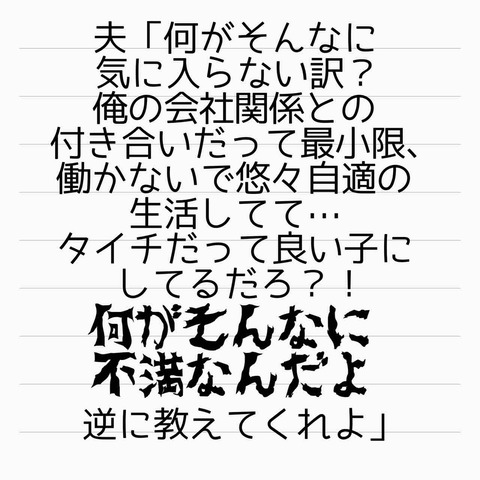 夫「何がそんなに
気に入らない訳？
俺の会社関係との
付き合いだって最小限、
働かないで悠々自適の
生活してて…
タイチだって良い子に
してるだろ？！
何がそんなに
不満なんだよ
逆に教えてくれよ」